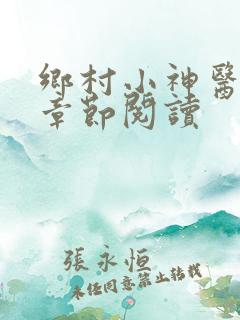 鄉村小神醫
章節閱讀
張永恒
未任同意禁止轉載